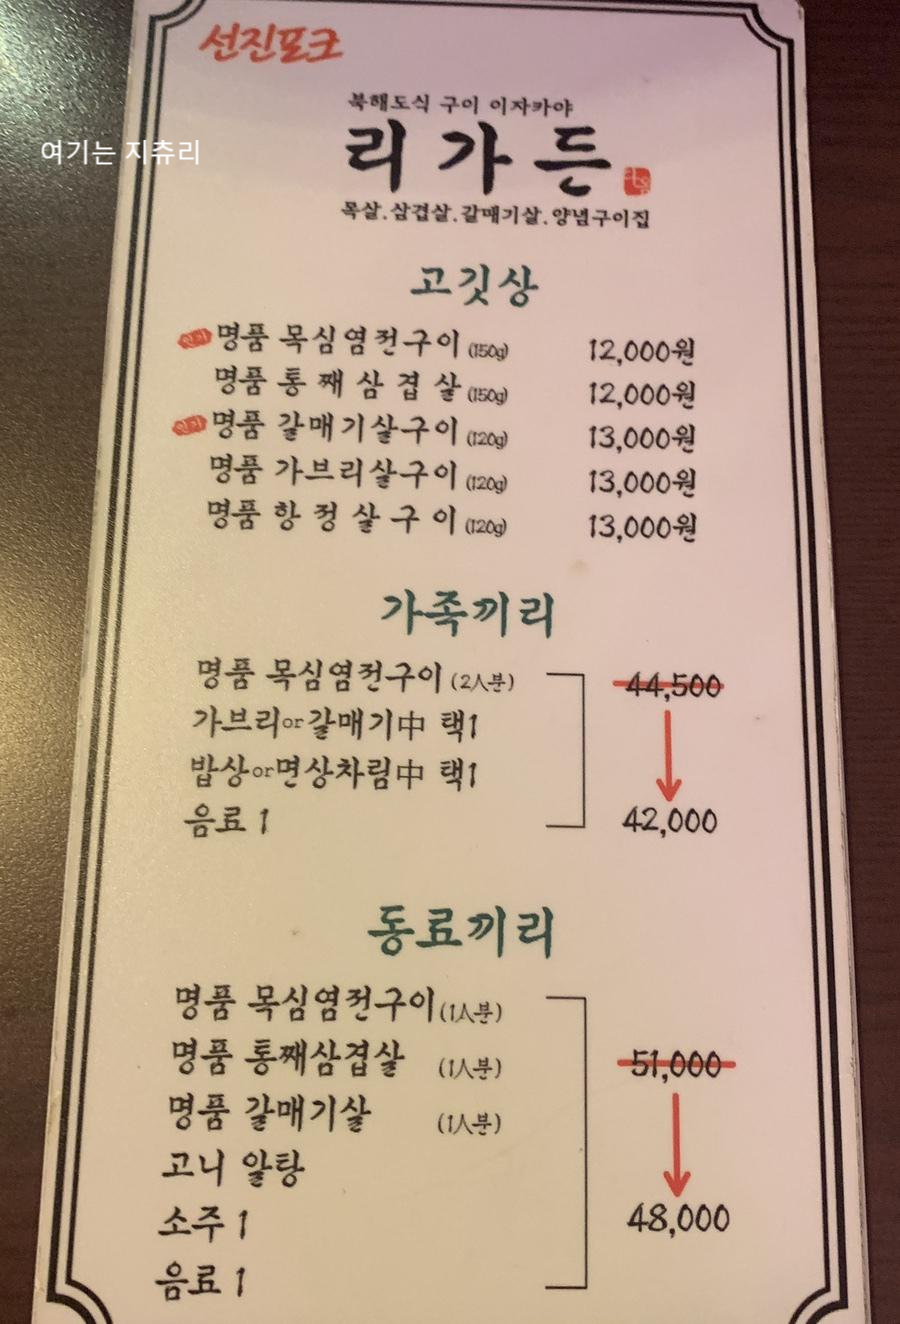 선진포크
북해도식 구이 이자카야
여기는 지츄리
리가든
목살.삼겹살.갈매기살.양념구이집
고깃상
인기 명품 목심염전구이 (150g) 12,000원
명품 통째삼겹살 (150g) 12,000원
인기 명품 갈매기살구이 (120g) 13,000원
명품 가브리살구이 (120g) 13,000원
명품 항정살구이 (120g) 13,000원
가족끼리
명품 목심염전구이 (2人분) 44,500
가브리or갈매기中 택1
밥상or면상차림中 택1
음료 1 42,000
동료끼리
명품 목심염전구이 (1人분)
명품 통째삼겹살 (1人분) 51,000
명품 갈매기살 (1人분)
고니 알탕
소주 1 48,000
음료 1